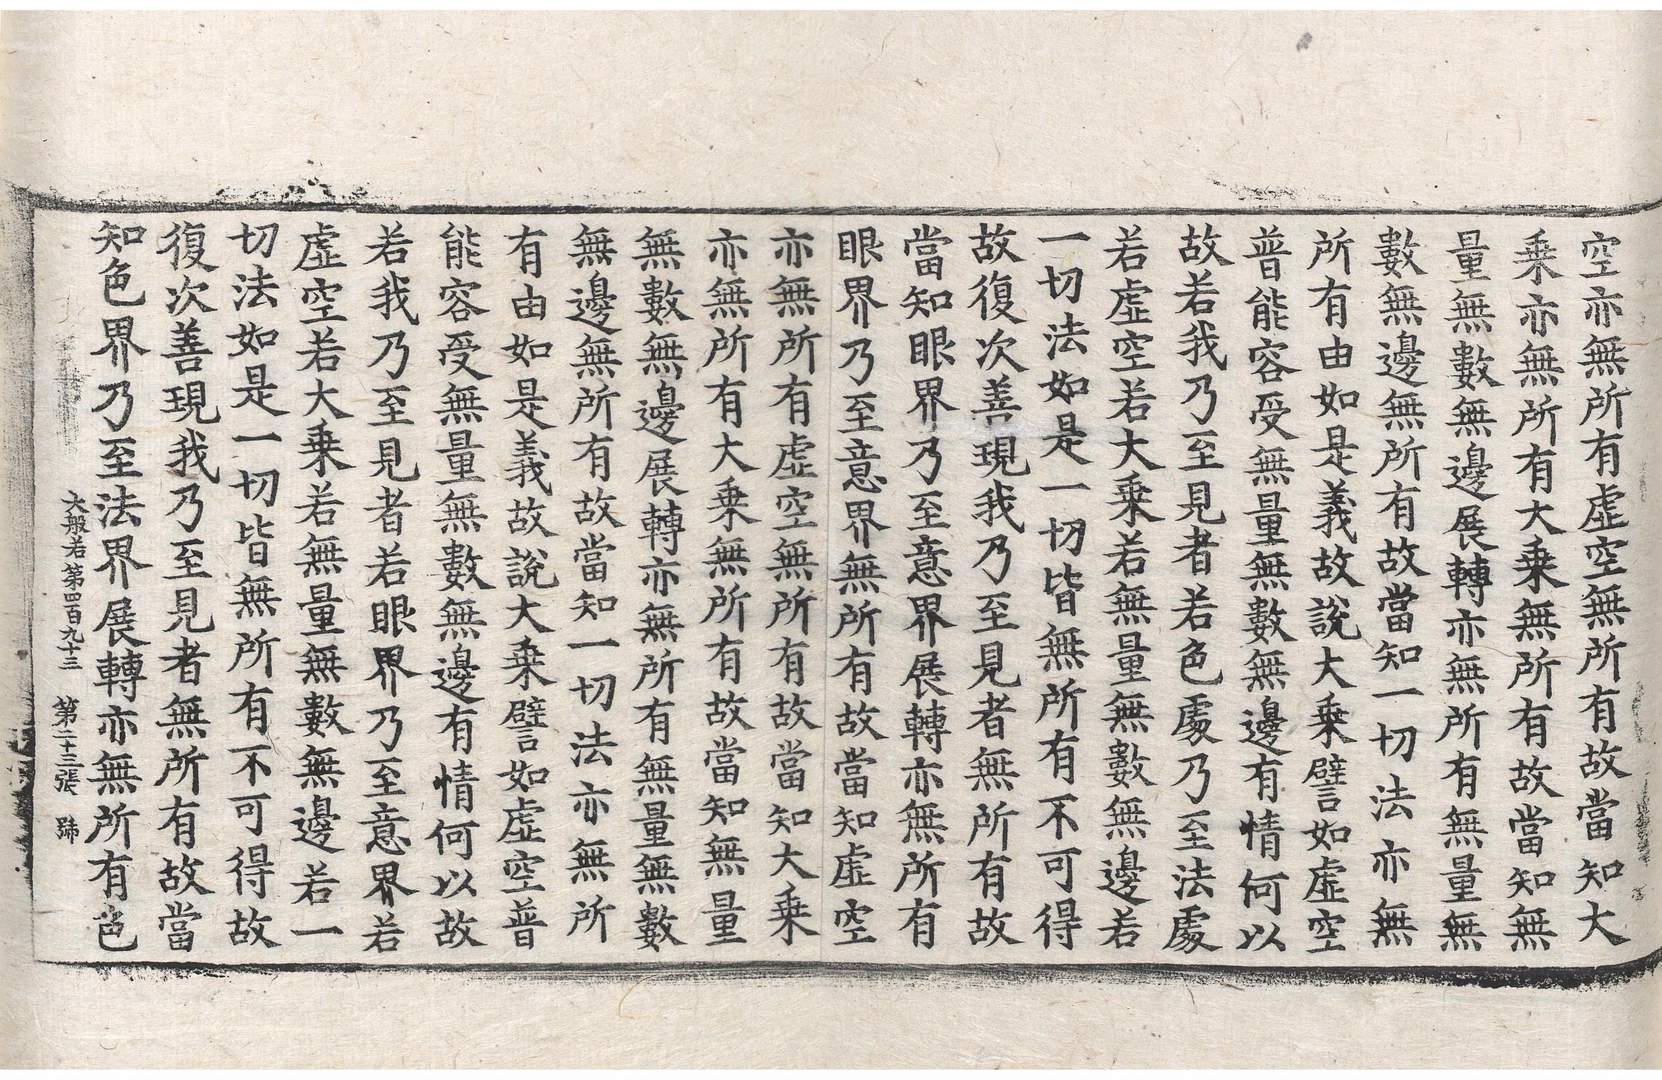 空亦無所有虛空無所有故當知大
乘亦無所有大乘無所有故當知無
量無數無邊展轉亦無所有無量無
數無邊無所有故當知一切法亦無
所有由如是義故說大乘譬如虛空
普能容受無量無數無邊有情何以
故若我乃至見者若色處乃至法處
若虛空若大乘若無量無數無邊若
一切法如是一切皆無所有不可得
故復次善現我乃至見者無所有故
當知眼界乃至意界展轉亦無所有
眼界乃至意界無所有故當知虛空
亦無所有虛空無所有故當知大乘
亦無所有大乘無所有故當知無量
無數無邊展轉亦無所有無量無數
無邊無所有故當知一切法亦無所
有由如是義故說大乘譬如虛空普
能容受無量無數無邊有情何以故
若我乃至見者若眼界乃至意界若
虛空若大乘若無量無數無邊若一
切法如是一切皆無所有不可得故
復次善現我乃至見者無所有故當
知色界乃至法界展轉亦無所有色
大般若第四百九十三 第二十三張 號